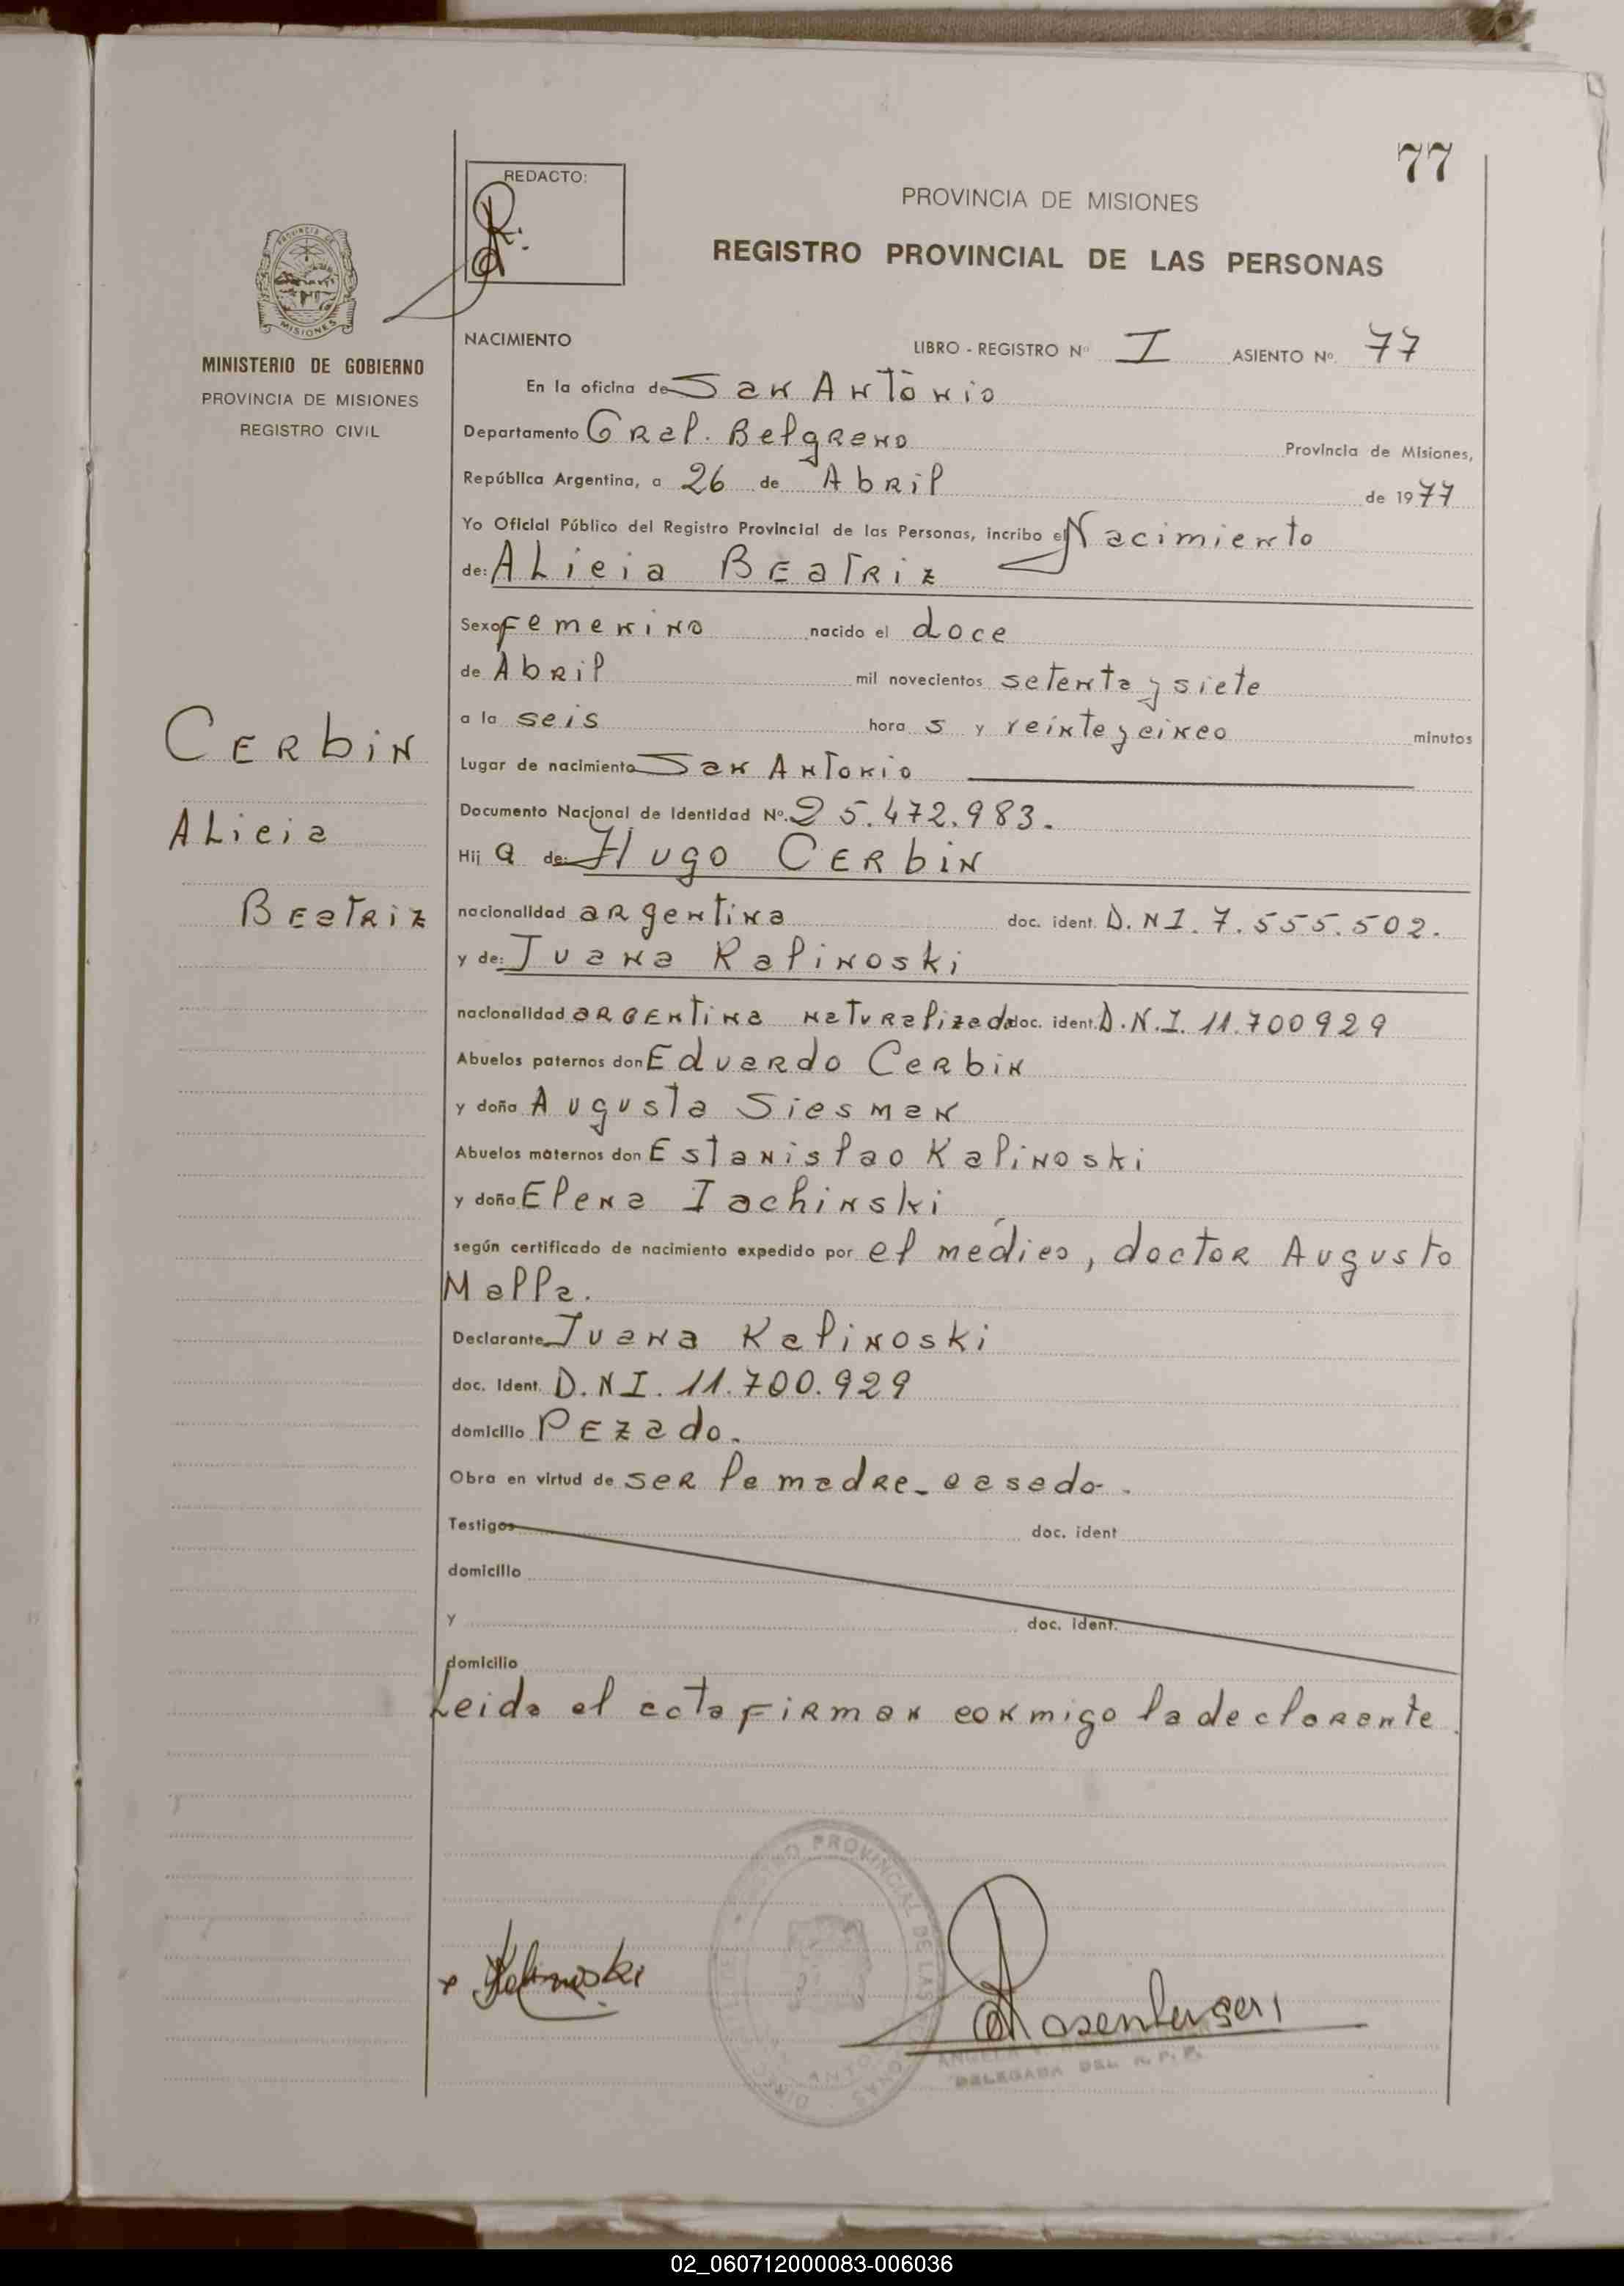 77
REDACTO:
PROVINCIA DE MISIONES
REGISTRO PROVINCIAL DE LAS PERSONAS
PROVINCIA DE
MISIONES
MINISTERIO DE GOBIERNO
PROVINCIA DE MISIONES
REGISTRO CIVIL
NACIMIENTO LIBRO - REGISTRO Nº I ASIENTO Nº. 77
En la oficina de San Antonio
Departamento Gral. Belgrano Provincia de Misiones,
República Argentina, a 26 de Abril de 1977
Yo Oficial Público del Registro Provincial de las Personas, incribo el Nacimiento
de: ALicia BEaTRiz
Sexo Femenino nacido el doce
de Abril mil novecientos setenta y siete
a la seis hora s y veinte y cinco minutos
Cerbin
Lugar de nacimiento San Antonio
Documento Nacional de Identidad Nº. 25.472.983.
Alicia
Hij a de: Hugo CERbin
Beatriz
nacionalidad argentina doc. ident. D.N I. 7.555.502.
y de: Juana Kalinoski
nacionalidad argentina naturalizada doc. ident. D.N.I. 11.700929
Abuelos paternos don Eduardo Cerbin
y doña Augusta Siesman
Abuelos maternos don Estanislao Kalinoski
y doña Elena Iachinski
según certificado de nacimiento expedido por el médico, doctor Augusto
Malla.
Declarante Juana Kalinoski
doc. Ident. D.N I. 11.700.929
domicilio Pezado.
Obra en virtud de ser la madre - casada.
Testigos doc. ident
domicilio
y doc. ident.
domicilio
Leida el acta firman conmigo la declarante.
x Kalinoski
PROVINCIAL DE LAS
DELEGADA DEL R. P. P.
02_060712000083-006036